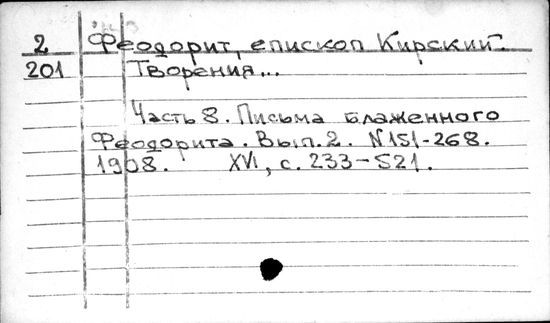 2 Феодорит, епископ Кирский.
201 Творения...
Часть 8. Письма блаженного
Феодорита. Вып. 2. N 151-268.
1908. XVI, с. 233-521.